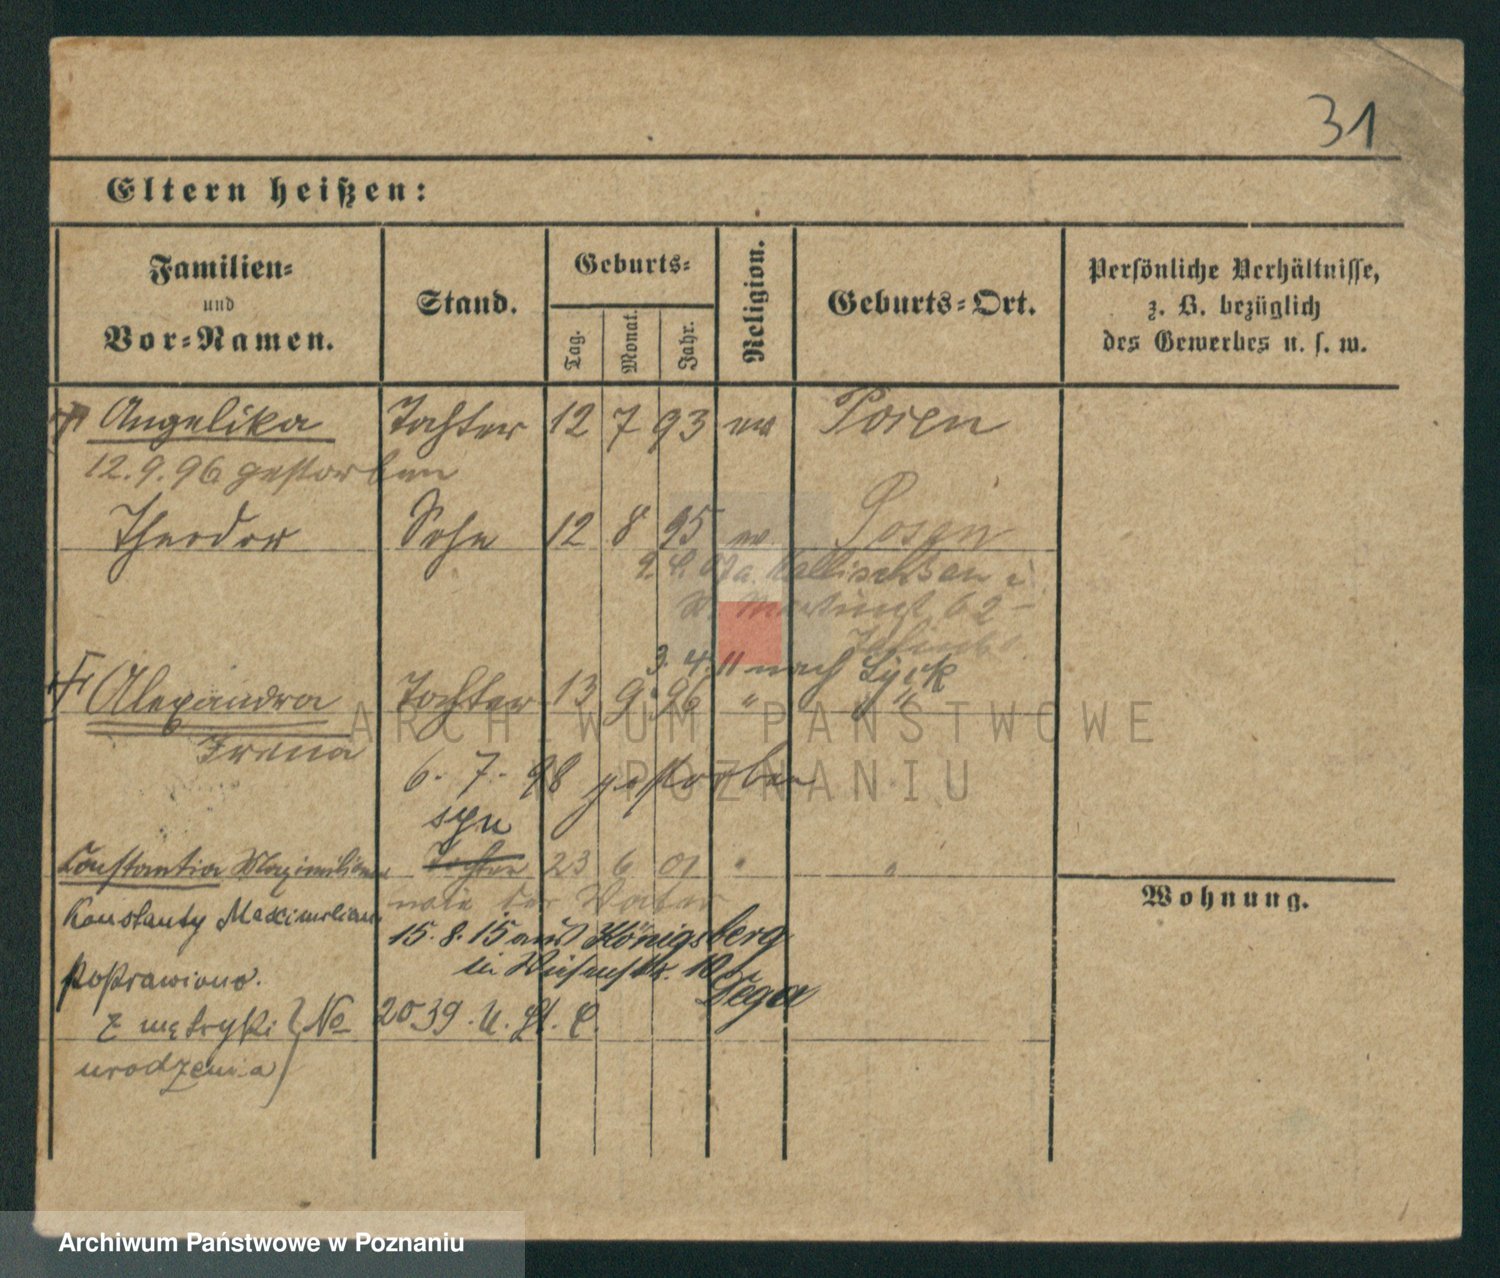 31
Eltern heißen:
Familien-
und
Vor-Namen.
Stand.
Geburts-
Tag.
Monat.
Jahr.
Religion.
Geburts-Ort.
Persönliche Verhältnisse,
z. B. bezüglich
des Gewerbes u. s. w.
Angelika Tochter 12 7 93 ev Posen
12.9.96 gestorben
Theodor Sohn 12 8 95 ev. Posen
62
3. 4. 11 nach Lyck
Alexandra Tochter 13 9. 96 " " "
Irena
6. 7. 98 gestorben
syn
Constantia Maximiliane Tochter 23 6 01 " "
Konstanty Maximilian wie der Vater
15. 8. 15 aus Königsberg
in 10
Poprawiono.
z metryki No 2039. U. St. C.
urodzenia
Wohnung.
ARCHIWUM PAŃSTWOWE
W POZNANIU
Archiwum Państwowe w Poznaniu